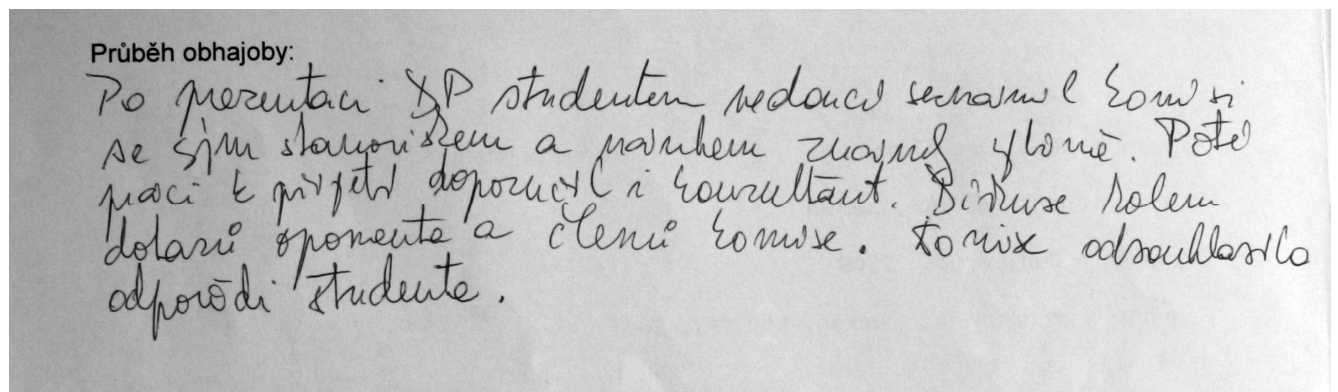 Průběh obhajoby:
Po prezentaci DP studentem vedoucí seznámil komisi
se svým stanoviskem a návrhem známky. Poté
práci k přijetí doporučil i konzultant. Diskuse kolem
dotazů oponenta a členů komise. Komise odsouhlasila
odpovědi studenta.